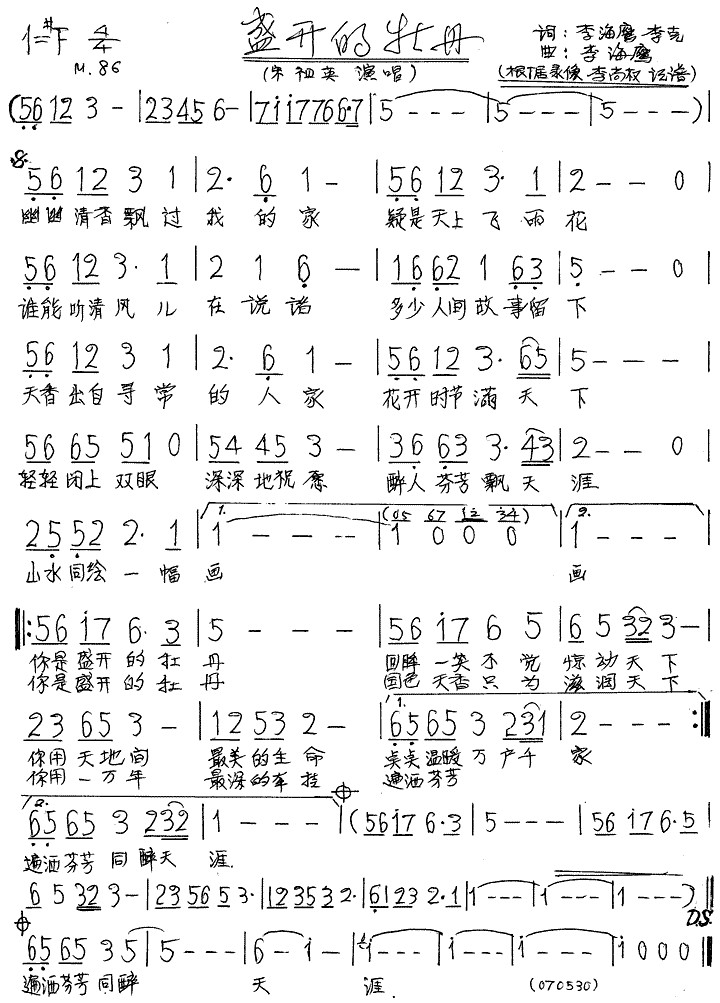 1=♯F 4/4 盛开的牡丹 词：李海鹰 李克
M.86 (宋祖英 演唱) 曲：李海鹰
(根据录像 李尚权 记谱)
(56 12 3 - | 23456 6 - | 7i i7766·7 | 5 - - - | 5 - - - | 5 - - - )|
56 12 3 1 | 2· 6 1 - | 56 12 3· 1 | 2 - - 0 |
幽幽 清香 飘 过 我 的 家 疑是 天上 飞 雨 花
56 12 3· 1 | 2 1 6 - | 16 62 1 63 | 5 - - 0 |
谁能 听清 风 儿 在 说 诸 多少 人间 故 事留 下
56 12 3 1 | 2· 6 1 - | 56 12 3· 65 | 5 - - - |
天香 出自 寻 常 的 人 家 花开 时节 满 天 下
56 65 51 0 | 54 45 3 - | 36 63 3· 43 | 2 - - 0 |
轻轻 闭上 双眼 深深 地祝 愿 醉人 芬芳 飘 天 涯
1. (05 67 i2 34) 2.
25 52 2· 1 | 1 - - - | 1 0 0 0 | 1 - - - |
山水 同绘 一 幅 画 画
‖: 56 i7 6· 3 | 5 - - - | 56 i7 6 5 | 6 5 32 3 - |
你是 盛开 的 牡 丹 回眸 一笑 不 觉 惊 动 天 下
你是 盛开 的 牡 丹 国色 天香 只 为 滋 润 天 下
1.
23 65 3 - | 12 53 2 - | 65 65 3 231 | 2 - - - :‖
你用 天地 间 最美 的生 命 点点 温暖 万 户千 家
你用 一万 年 最深 的牵 挂 遍洒 芬芳
2.
65 65 3 232 | 1 - - - | (56 i7 6·3 | 5 - - - | 56 i7 6·5 |
遍洒 芬芳 同 醉天 涯.
6 5 32 3 - | 23 56 5 3· | 12 35 3 2· | 61 23 2·1 | 1 - - - | 1 - - - | 1 - - - )|
D.S.
65 65 3 5 | 5 - - - | 6 - i - | i - - - | i - - - | i - - - | i 0 0 0 ‖
遍洒 芬芳 同 醉 天 涯
(070530)